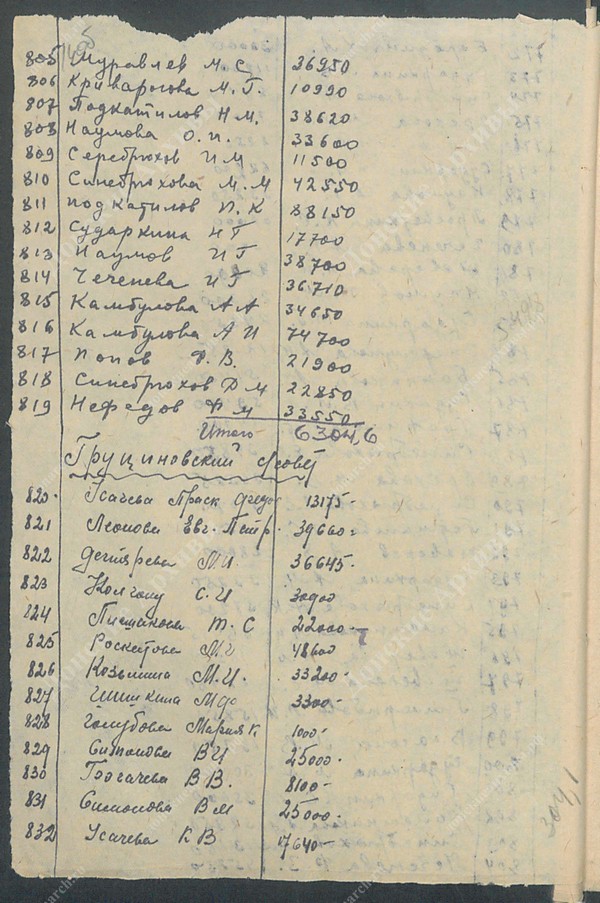 805 Журавлев М. С. 36950
806 Криварогова М. Г. 10990
807 Подкатилов Н М. 38620
808 Наумова О. И. 33600
809 Серебрюхов И М 11500
810 Синебрюхова М. М 42550
811 Подкатилов П. К 88150
812 Сударкина Н Г 17700
813 Наумов И Г 38700
814 Чеченева И Г 36710
815 Камбулова А А 34650
816 Камбулова А И 74700
817 Попов Ф. В. 21900
818 Синебрюхов Д М 22850
819 Нефедов Ф М 33550
Итого 6304,6
Грушиновский с/совет
820. Усачева Праск Федор 13175-
821 Леонова Евг. Петр. 39660-
822 Дегтярева М И. 36645-
823 С. И 30900
824 Т. С 22000-
825 М И 48600
826 Козьмина М. И. 33200-
827 Шишкина М Ф 3300-
828 Голубова Мария К 1000-
829 Симонова В И 25000-
830 Богачева В В. 8100-
831 Симонова В М 25000-
832 Усачева К В 17640-